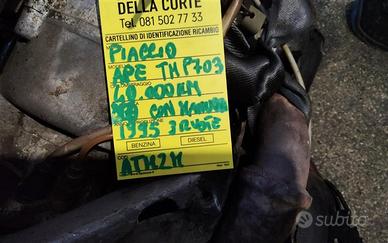 DELLA CORTE
Tel. 081 502 77 33
CARTELLINO DI IDENTIFICAZIONE RICAMBIO
PIAGGIO
APE TM P703
CON
1995 3 RUOTE
BENZINA DIESEL
ATM2M
subito